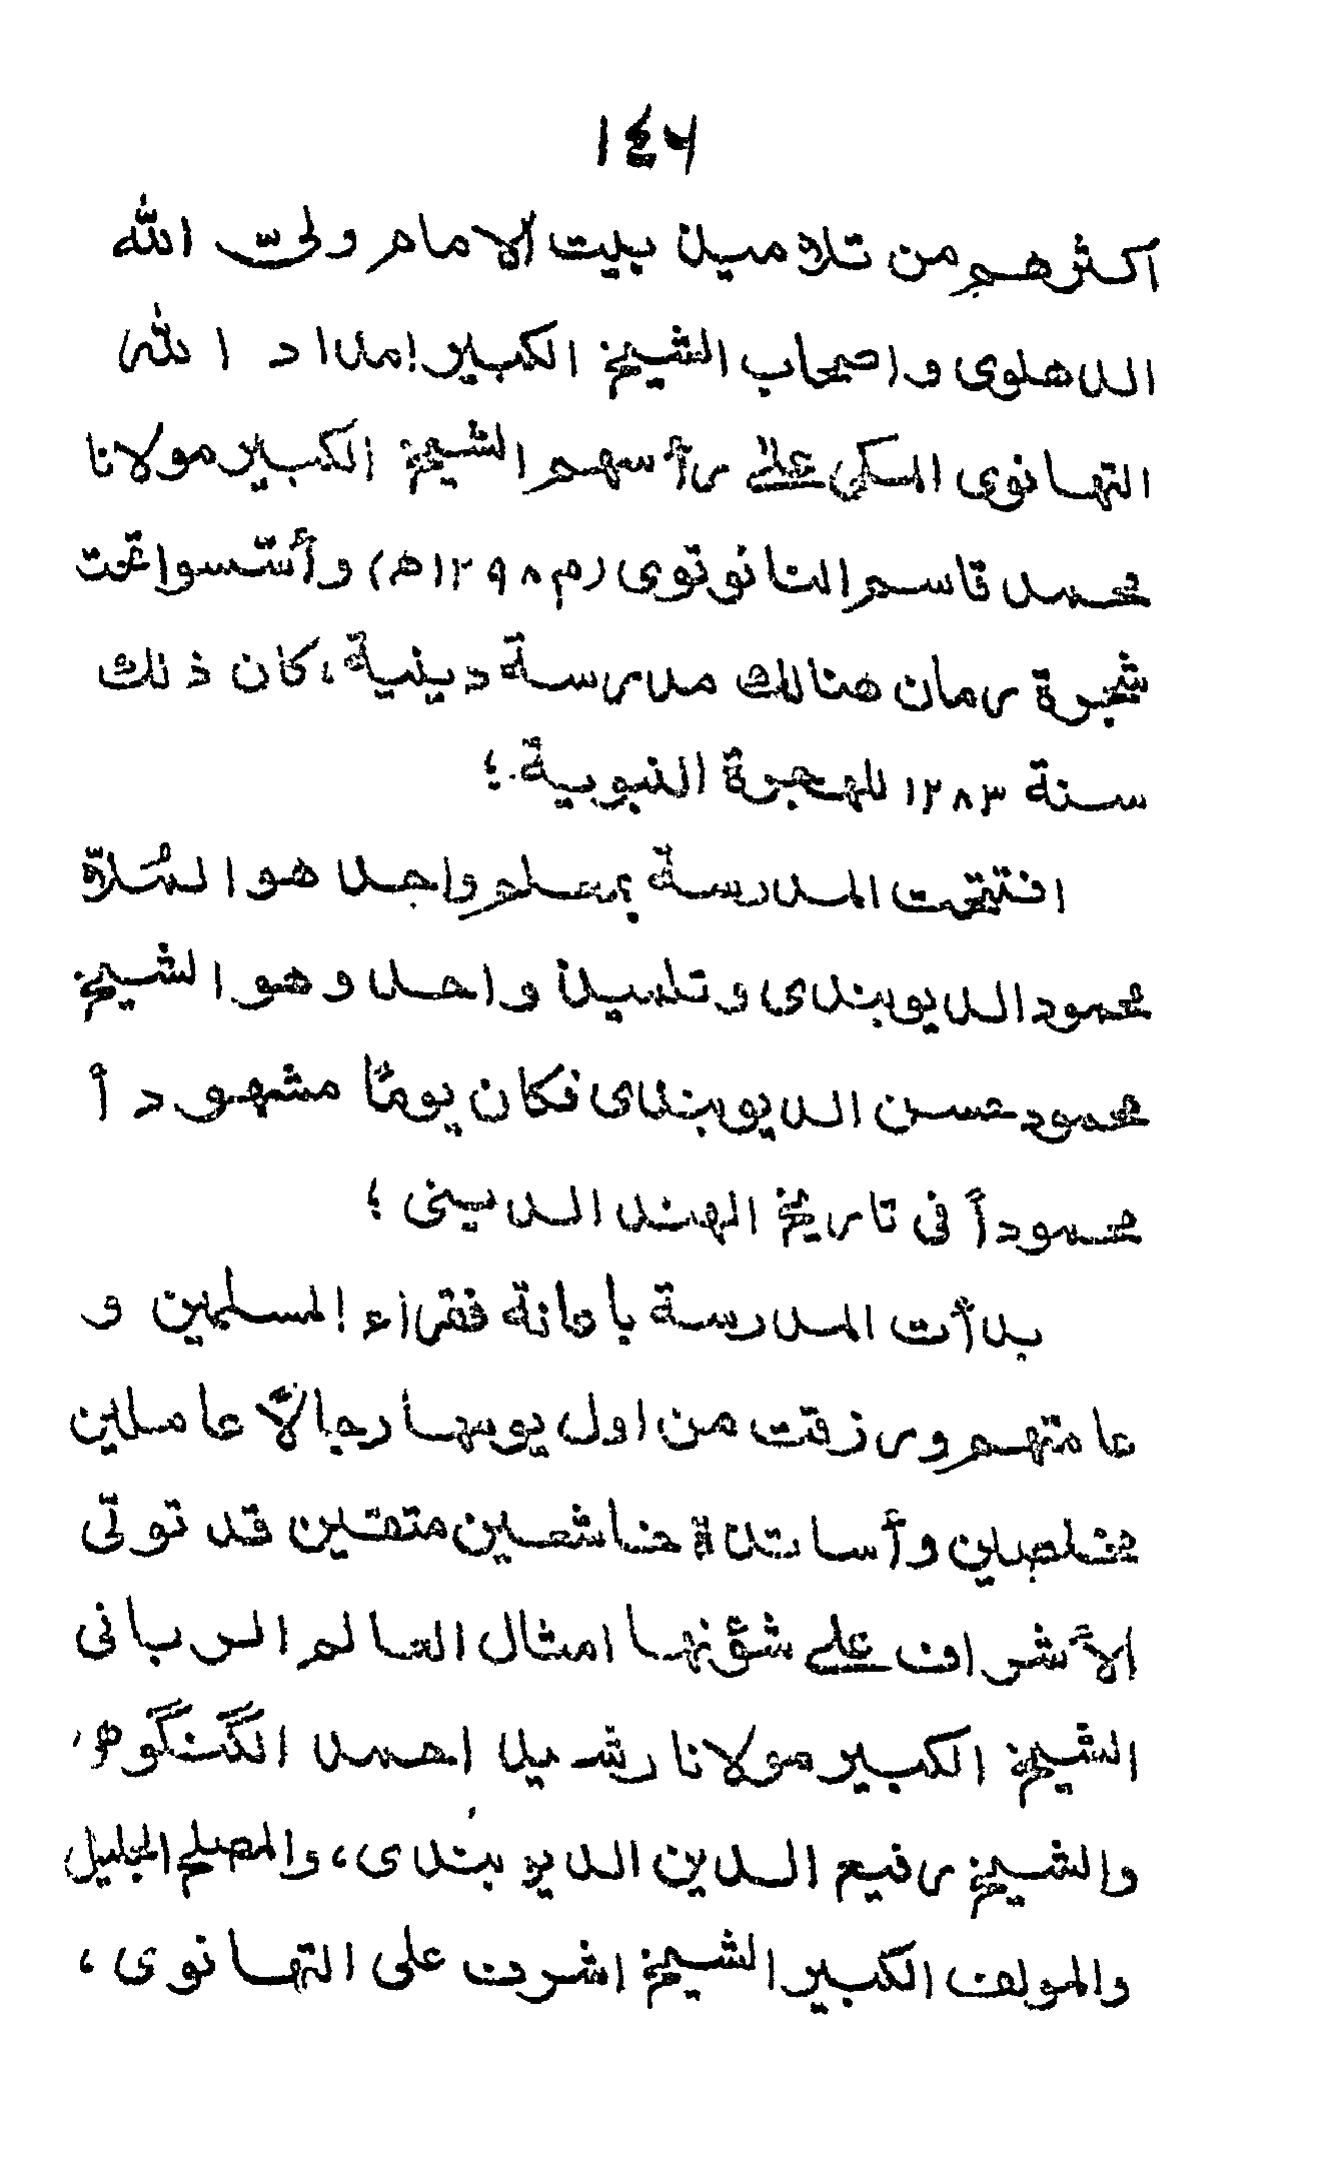 ١٤٦
اكثرهم من تلاميذ بيت الامام ولىّ الله
الدهلوى واصحاب الشيخ الكبير إمداد الله
التهانوى المكى علىٰ رأسهم الشيخ الكبير مولانا
محمد قاسم النانوتوى (م ١٢٩٨ه) وأسّسوا تحت
شجرة رمان هنالك مدرسة دينية، كان ذلك
سنة ١٢٨٣ للهجرة النبوية؛
افتتحت المدرسة بمعلم واحد هو المُلاّ
محمود الديوبندى وتلميذ واحد وهو الشيخ
محمود حسن الديوبندى فكان يومًا مشهوداً
محموداً فى تاريخ الهند الدينى؛
بدأت المدرسة باعانة فقراء المسلمين و
عامتهم ورزقت من اول يومها رجالاً عاملين
مخلصين وأساتذة خاشعين متقين قد تولّى
الأشراف على شؤنها امثال العالم الربانى
الشيخ الكبير مولانا رشيد احمد الگنگوهى
والشيخ رفيع الدين الديوبندى، والمصلح الجليل
والمولف الكبير الشيخ اشرف على التهانوى،